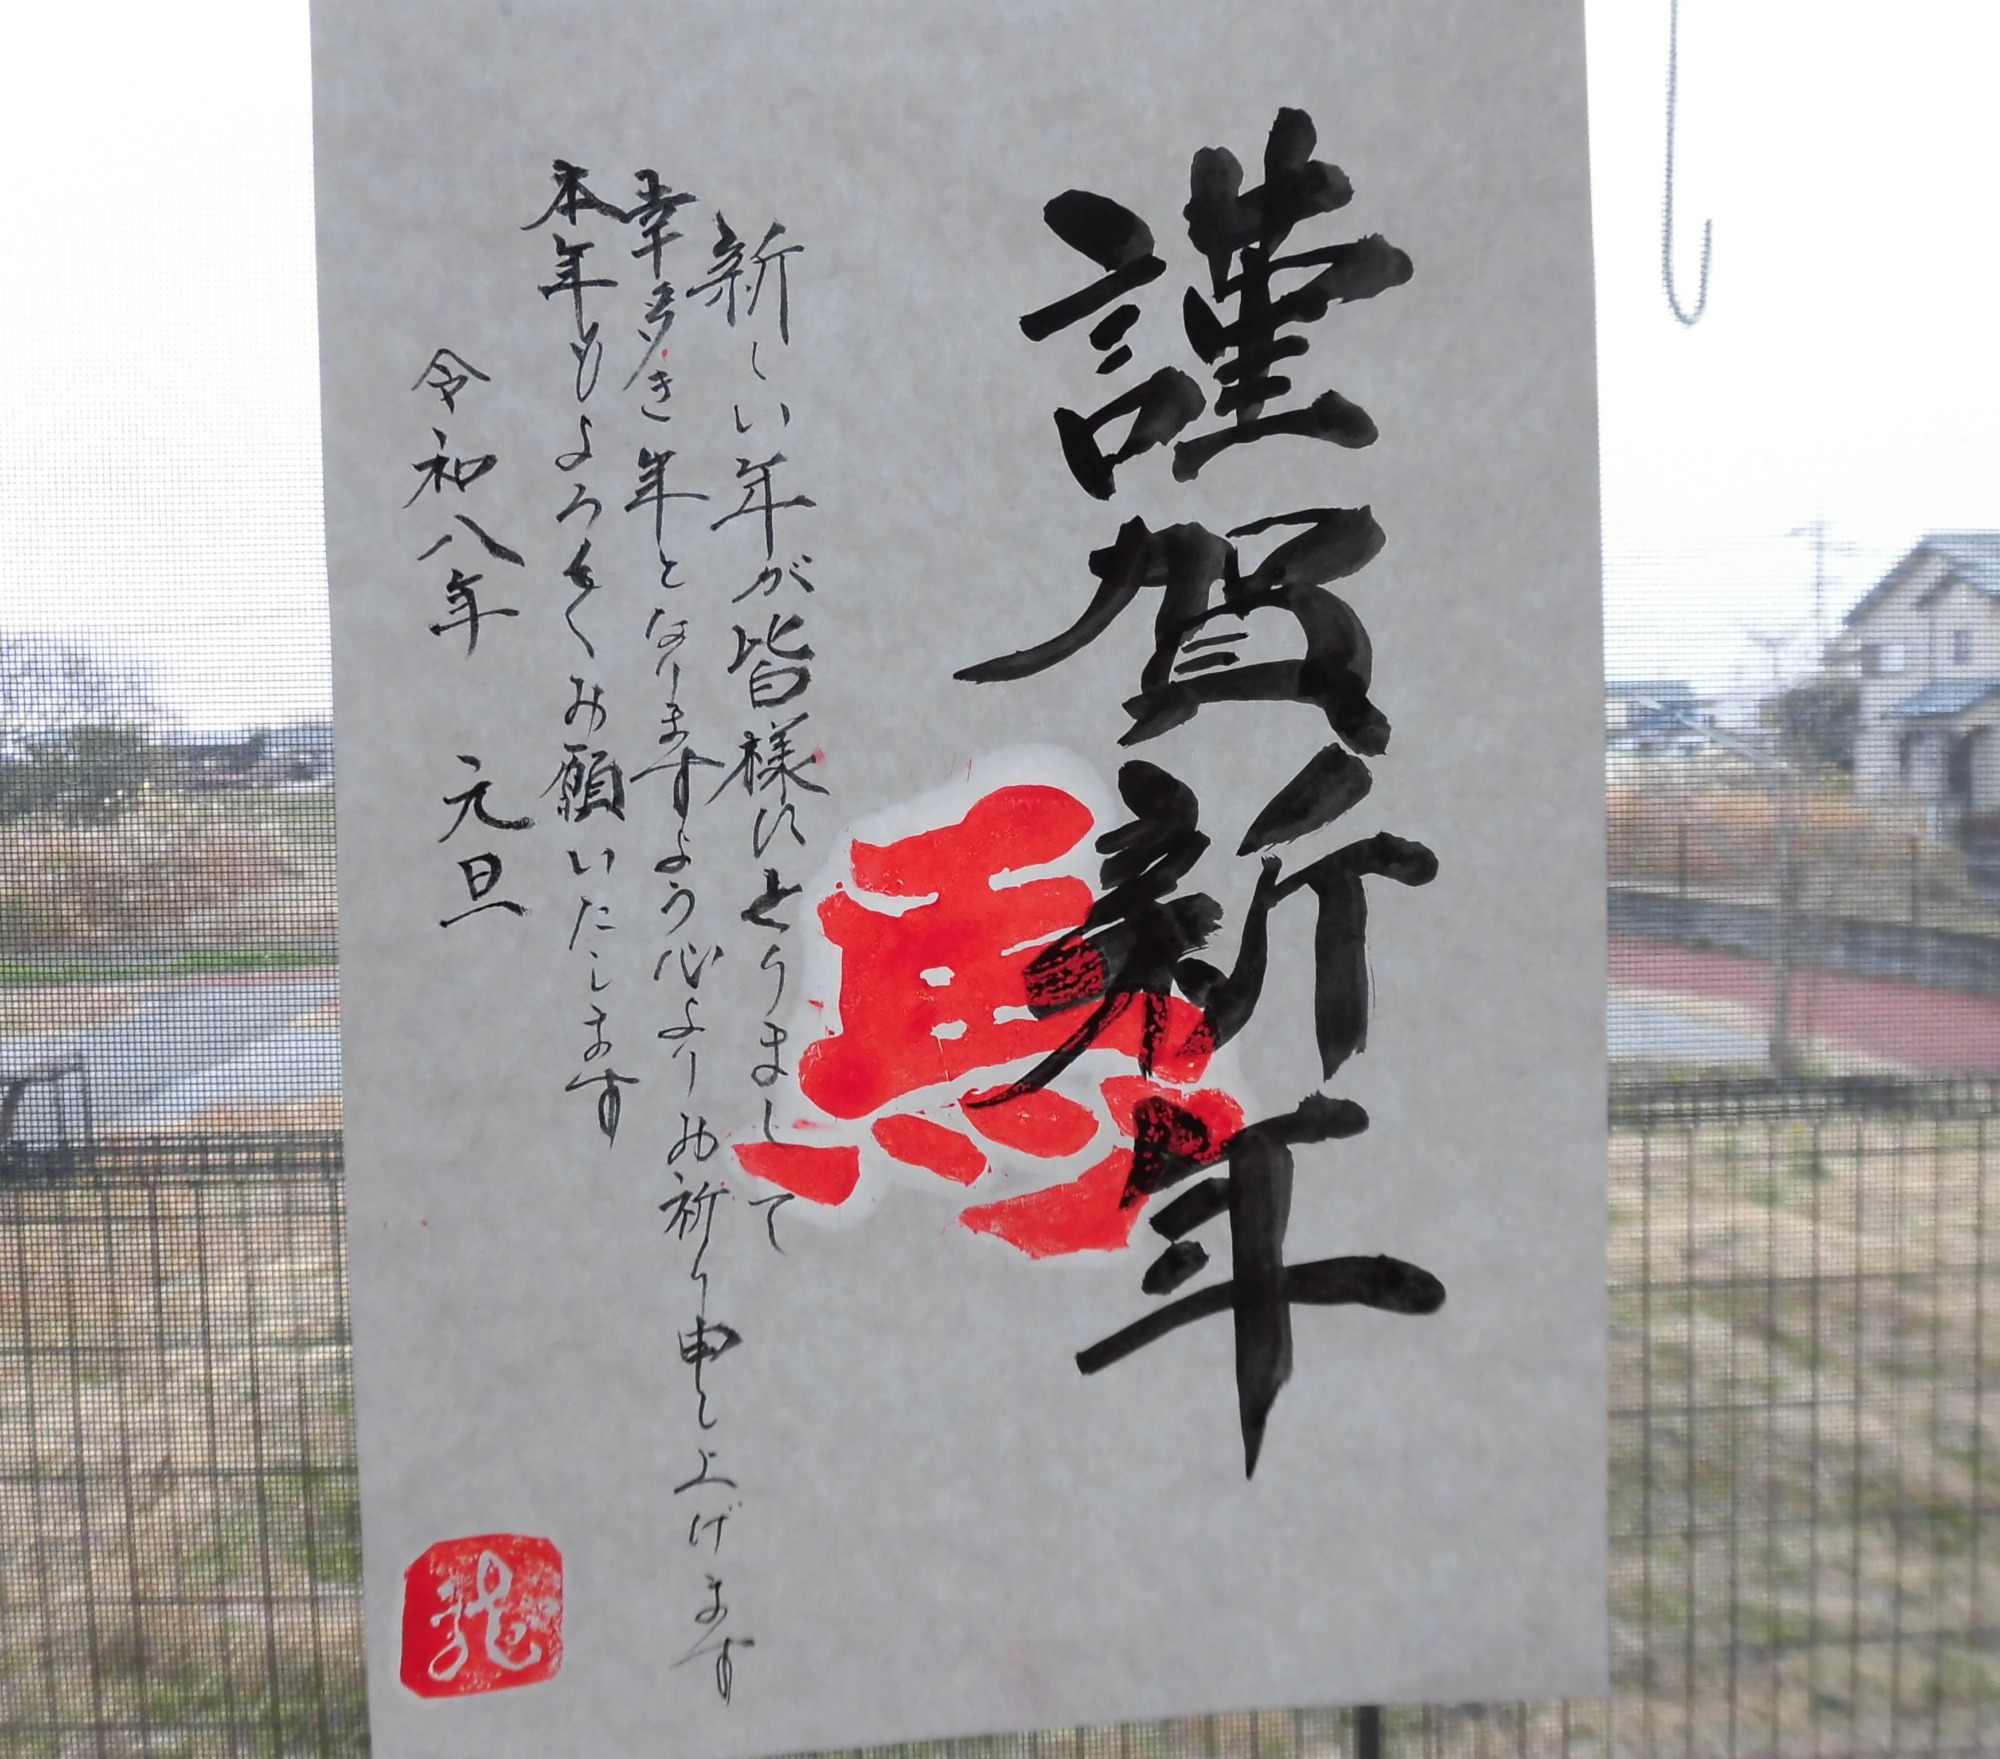 謹賀新年
馬
新しい年が皆様にとりまして
幸多き年となりますよう心よりお祈り申し上げます
本年もよろしくお願いいたします
令和八年 元旦
龍